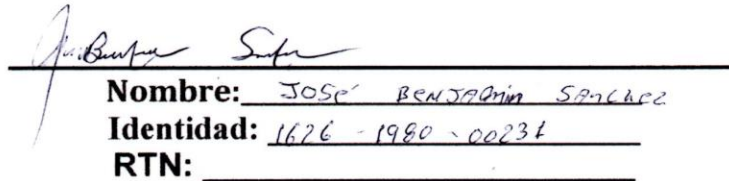 Nombre: José Benjamin Sanchez
Identidad: 1626-1980-00231
RTN: